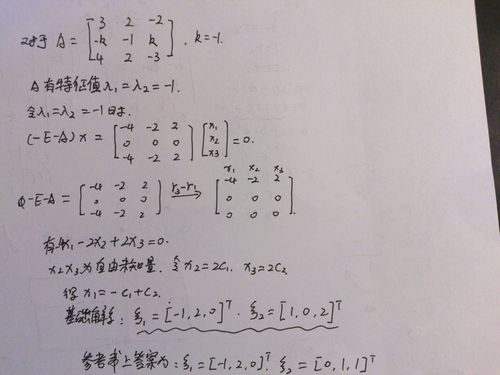 对于 A = [3 2 -2; -k -1 k; 4 2 -3], k=-1.
A有特征值λ₁=λ₂=-1.
令λ₁=λ₂=-1时.
(-E-A)x = [-4 -2 2; 0 0 0; -4 -2 2] [x₁; x₂; x₃] =0.
x₁ x₂ x₃
-E-A = [-4 -2 2; 0 0 0; -4 -2 2] r₃-r₁→ [-4 -2 2; 0 0 0; 0 0 0].
有-4x₁-2x₂+2x₃=0.
x₂x₃为自由未知量. 令x₂=2c₁. x₃=2c₂
得 x₁=-c₁+c₂.
基础解系: ξ₁=[-1,2,0]ᵀ. ξ₂=[1,0,2]ᵀ
参考书上答案为: ξ₁=[-1,2,0]ᵀ. ξ₂=[0,1,1]ᵀ